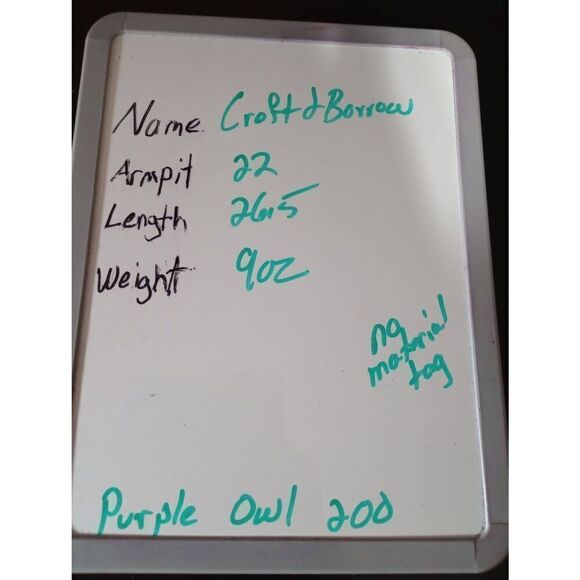 Name Croft & Borrow
Armpit 22
Length 26.5
Weight 9oz
no
material
tag
Purple Owl 200